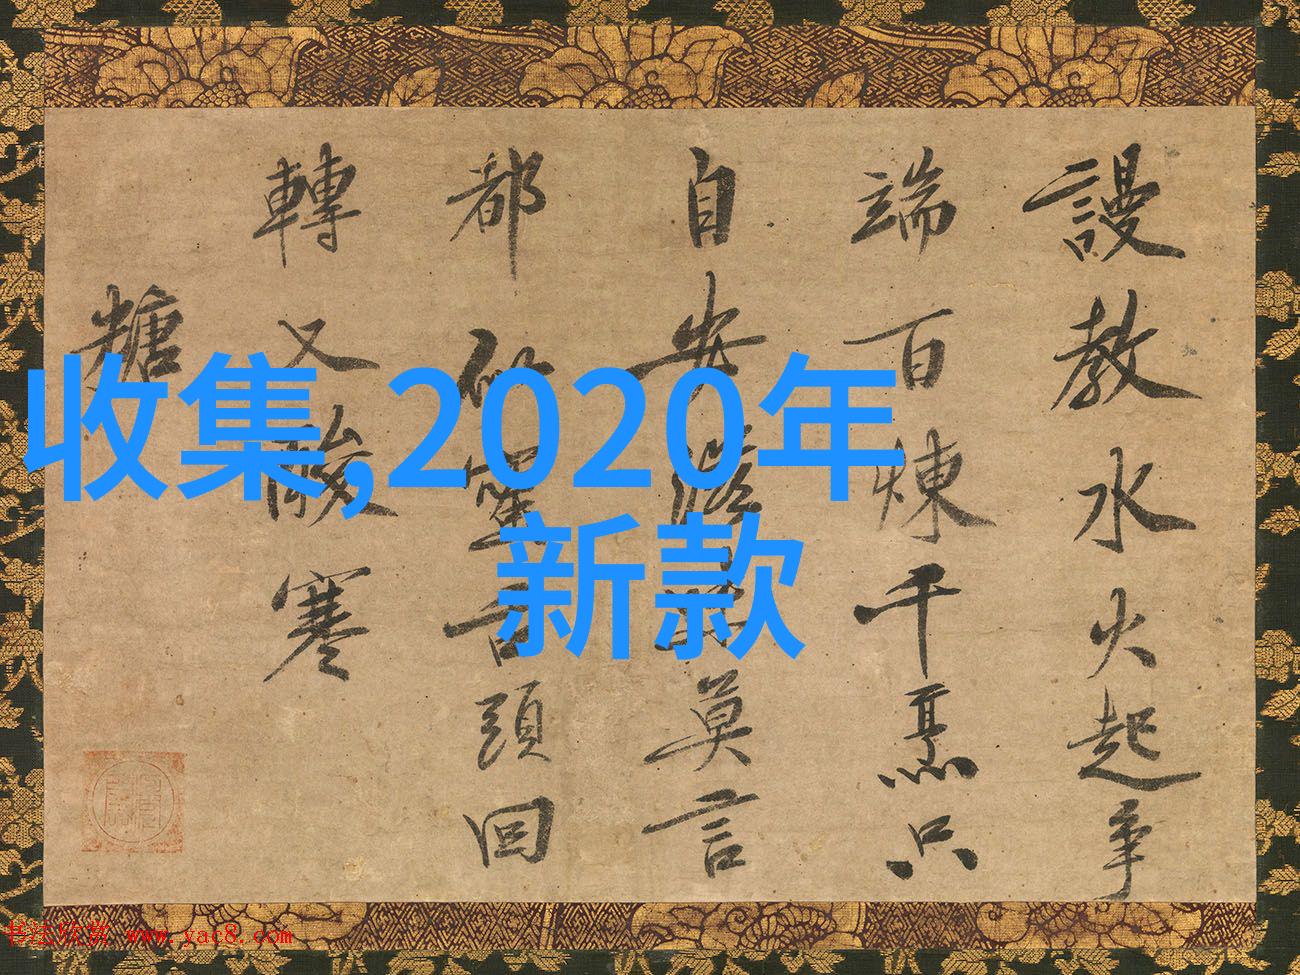 謾教水火起爭
端百煉千熏只
自安 莫言
都 舌頭回
轉又酸寒
糖
收集,2020年
新款
书法欣赏 www.yac8.com